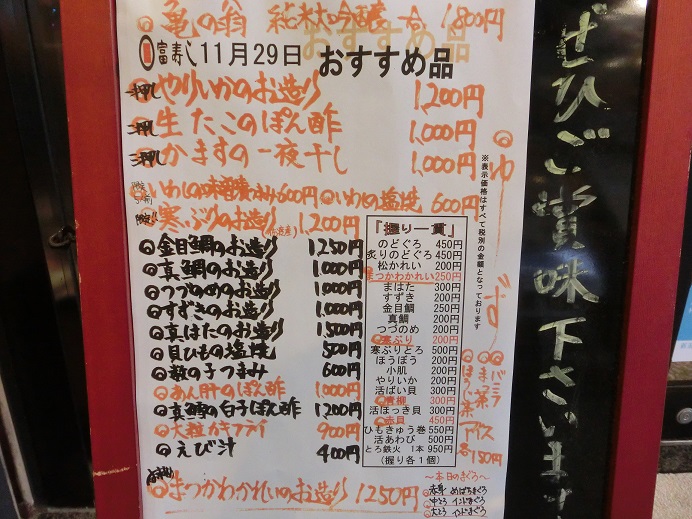 亀の翁 純米大吟醸 一合 1,800円
富寿し 11月29日 おすすめ品
一押し やりいかのお造り 1,200円
一押し 生たこのぽん酢 1,000円
一押し かますの一夜干し 1,000円
いわしの 600円 ◎いわしの塩焼 600円
寒ぶりのお造り 1,200円
◎金目鯛のお造り 1,250円
◎真鯛のお造り 1,000円
◎つづのめのお造り 1,000円
◎すずきのお造り 1,000円
◎真はたのお造り 1,500円
◎貝ひもの塩焼 500円
◎数の子つまみ 600円
◎あん肝のぽん酢 1,000円
◎真鱈の白子ぽん酢 1,200円
◎大粒カキフライ 900円
◎えび汁 400円
◎まつかわかれいのお造り 1250円
「握り一貫」
のどぐろ 450円
炙りのどぐろ 450円
松かれい 200円
まつかわかれい 250円
まはた 300円
すずき 200円
金目鯛 250円
真鯛 200円
つづのめ 200円
◎寒ぶり 200円
寒ぶりとろ 500円
ほうぼう 200円
小肌 200円
やりいか 200円
活ばい貝 300円
◎青柳 300円
活ほっき貝 300円
◎赤貝 450円
ひもきゅう巻 550円
活あわび 500円
とろ鉄火 1本 950円
(握り各1個)
※表示価格はすべて税別の金額となっております
◎ゆず
◎バニラ
◎まっ茶
◎ほうじ茶
アイス
各150円
～本日のまぐろ～
赤身 めばちまぐろ
中とろ インドまぐろ
大とろ インドまぐろ
ぜひご賞味下さいませ